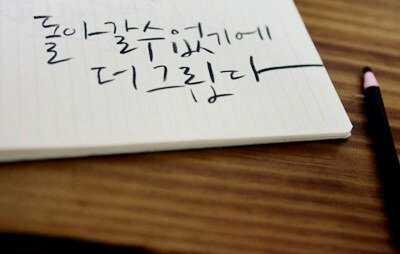 돌아갈수없기에
더그립다